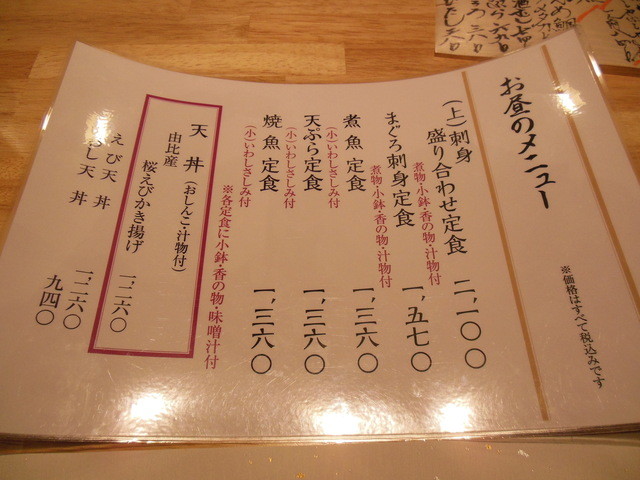 お昼のメニュー
※価格はすべて税込みです
(上)刺身
盛り合わせ定食
二、一〇〇
煮物・小鉢・香の物・汁物付
まぐろ刺身定食
一、五七〇
煮物・小鉢・香の物・汁物付
煮魚定食
一、三六〇
(小)いわしさしみ付
天ぷら定食
一、三六〇
(小)いわしさしみ付
焼魚定食
一、三六〇
(小)いわしさしみ付
※各定食に小鉢・香の物・味噌汁付
天丼(おしんこ・汁物付)
由比産
桜えびかき揚げ
一、二六〇
えび天丼
一、二六〇
天丼
九四〇